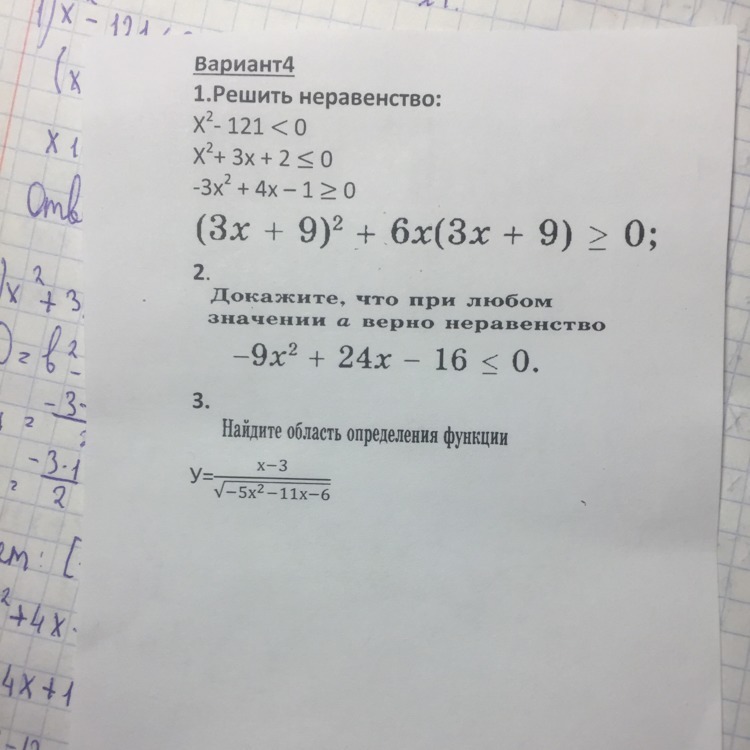 1) x² - 121 <
(x
x 1
Отв
x² + 3
D = b² -
-3-
-3·1
2
ет: [
² + 4x
4x + 1
Вариант4
1.Решить неравенство:
X²- 121 < 0
X²+ 3x + 2 ≤ 0
-3x² + 4x – 1 ≥ 0
(3x + 9)² + 6x(3x + 9) ≥ 0;
2.
Докажите, что при любом
значении a верно неравенство
–9x² + 24x – 16 ≤ 0.
3.
Найдите область определения функции
У=\frac{x−3}{\sqrt{−5x²−11x−6}}